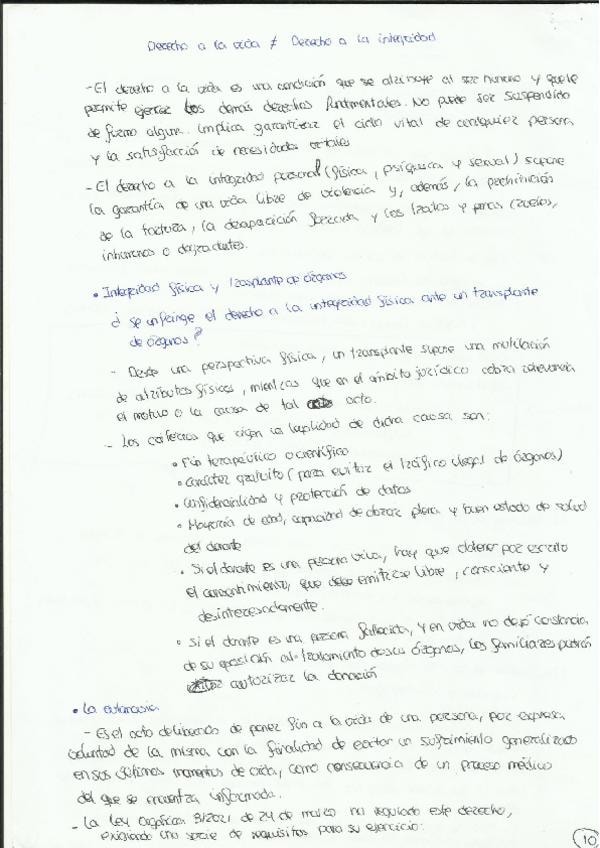 Derecho a la vida ≠ Derecho a la integridad
- El derecho a la vida es una condición que se atribuye al ser humano y que le
permite ejercer los demás derechos fundamentales. No puede ser suspendido
de forma alguna. Implica garantizar el ciclo vital de cualquier persona
y la satisfacción de necesidades vitales
- El derecho a la integridad personal (física, psíquica y sexual) supone
la garantía de una vida libre de violencia y, además, la prohibición
de la tortura, la desaparición forzada y los tratos y penas crueles,
inhumanos o degradantes.
• Integridad física y trasplante de órganos
¿ se infringe el derecho a la integridad física ante un transplante
de órganos?
- Desde una perspectiva física, un transplante supone una mutilación
de atributos físicos, mientras que en el ámbito jurídico cobra relevancia
el motivo o la causa de tal acto.
- Los criterios que rigen la legalidad de dicha causa son:
• Fin terapéutico o científico
• Carácter gratuito (para evitar el tráfico ilegal de órganos)
• Confidencialidad y protección de datos
• Mayoría de edad, capacidad de obrar plena y buen estado de salud
del donante
• Si el donante es una persona viva, hay que obtener por escrito
el consentimiento, que debe emitirse libre, consciente y
desinteresadamente.
• Si el donante es una persona fallecida, y en vida no dejó constancia
de su oposición al tratamiento de sus órganos, los familiares podrán
autorizar la donación
• La eutanasia
- Es el acto deliberado de poner fin a la vida de una persona, por expresa
voluntad de la misma con la finalidad de evitar un sufrimiento generalizado
en sus últimos momentos de vida, como consecuencia de un proceso médico
del que se encuentra informada.
- La Ley Orgánica 3/2021 de 24 de marzo ha regulado este derecho,
exigiendo una serie de requisitos para su ejercicio:
10